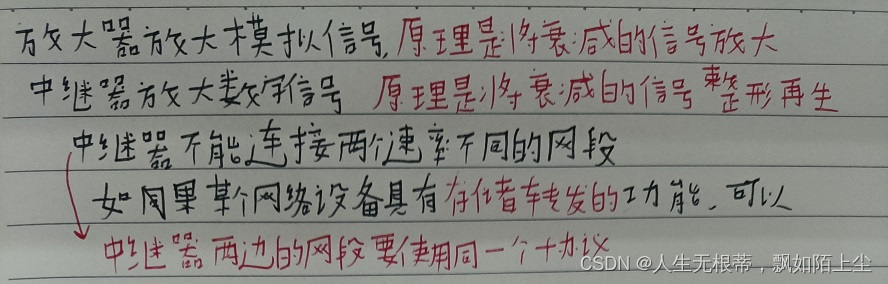 放大器放大模拟信号,原理是将衰减的信号放大
中继器放大数字信号 原理是将衰减的信号整形再生
中继器不能连接两个速率不同的网段
如同果某个网络设备具有存储转发的功能、可以
中继器两边的网段要使用同一个协议
CSDN @人生无根蒂，飘如陌上尘